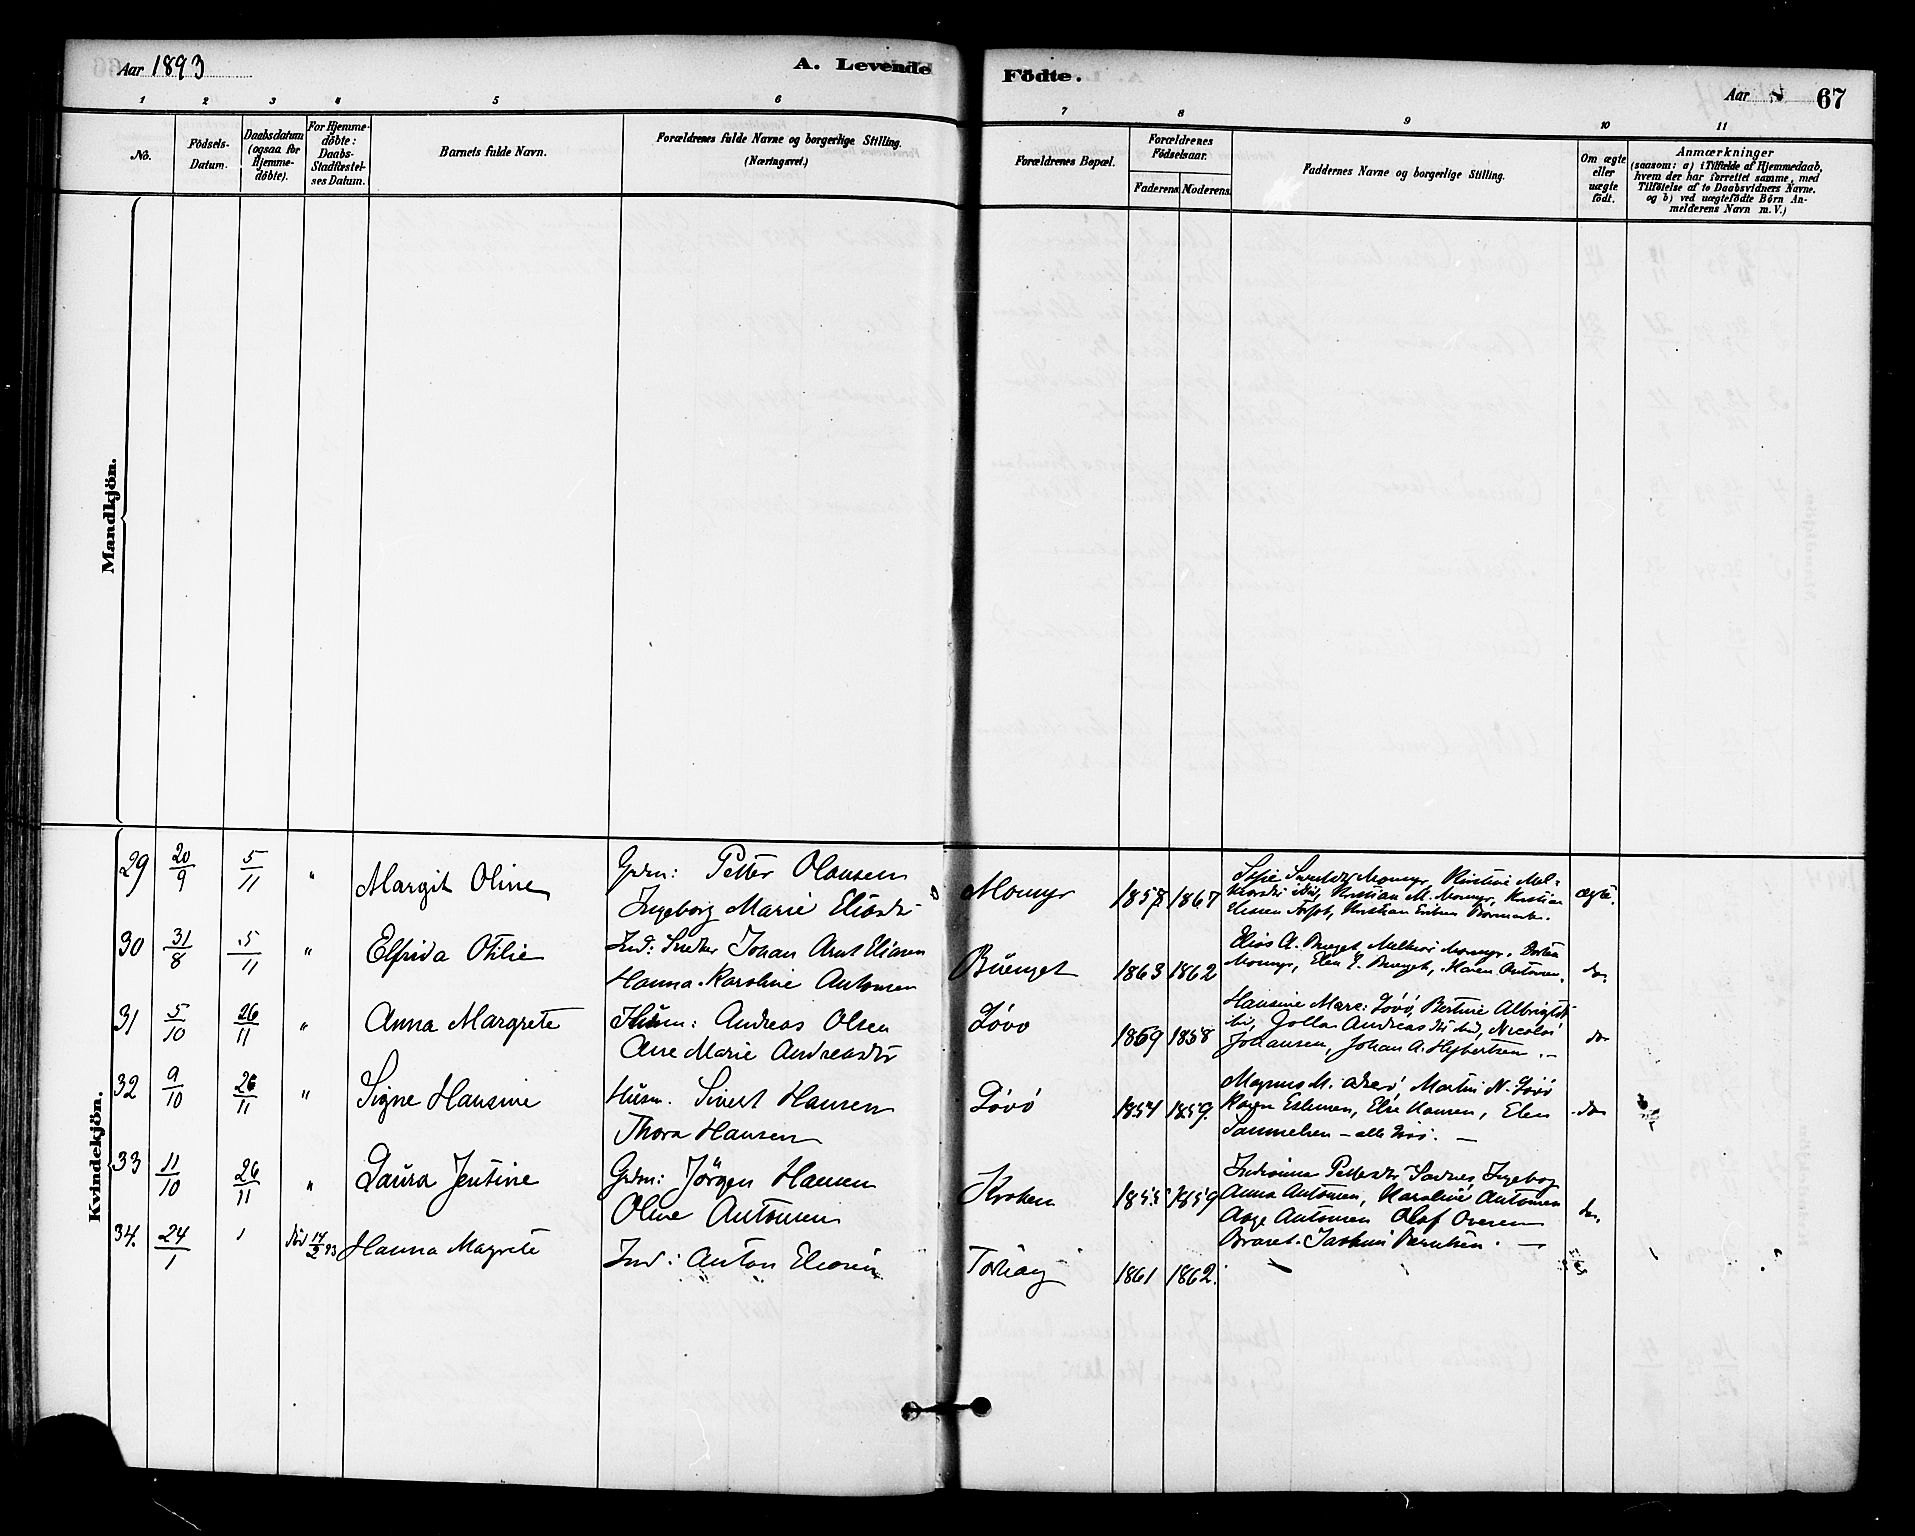 Aar 1893
A. Levende
Födte.
Aar
67
1 2 3 4 5 6 7 8 9 10 11
No.
Födsels-
Datum.
Daabsdatum
(ogsaa for
Hjemme-
döbte).
For Hjemme-
döbte:
Daabs-
Stadfæstel-
ses Datum.
Barnets fulde Navn.
Forældrenes fulde Navne og borgerlige Stilling.
(Næringsvei.)
Forældrenes Bopæl.
Forældrenes
Födselsaar.
Faderens. Moderens.
Faddernes Navne og borgerlige Stilling.
Om ægte
eller
uægte
födt.
Anmærkninger
(saasom: a) i Tilfælde af Hjemmedaab,
hvem der har forrettet samme, med
Tilföielse af to Daabsvidners Navne,
og b) ved uægtefödte Börn An-
melderens Navn m. V.)
Mandkjön.
Kvindekjön.
29 20/9 5/11 " Margit Oline
Gdm: Petter Olausen
Ingeborg Marie Eliasdr
Momyr 1857 1867
Kristian M. Momyr, Kristian
ægte.
30 31/8 5/11 " Elfrida Otilie
Ind: Snetker Johan Arnt Eliasen
Hanna Karoline Antonsen
Buenget 1863 1862
Elias A. Buenget, Melkior Momyr,
Momyr, Elen E. Buenget, Maren Antonsen.
do.
31 5/10 26/11 " Anna Margrete
Husm: Andreas Olsen
Ane Marie Andreasdr
Lövö 1869 1858
Hansine Marc: Lövö, Bertine Albrigts
Nicolai
Johansen, Johan A. Hybertsen. -
do
32 9/10 26/11 " Signe Hansine
Husm. Sivert Hansen
Thora Hansen
Lövö 1854 1859.
Magnus M. Martin N. Lövö
Karen Estensen, Else Hansen, Elen
Sammelsen - alle Lövö. -
do
33 11/10 26/11 " Laura Jentine
Gdm: Jörgen Hansen
Oline Antonsen
Kroken 1855 1859
Petersdr Ingeborg
Anna Antonsen, Karoline Antonsen
Aage Antonsen Olaf
do.
34. 24/1 ' död 14/2 93 Hanna Magrete
Ind: Anton
Tarhaug 1861 1862.